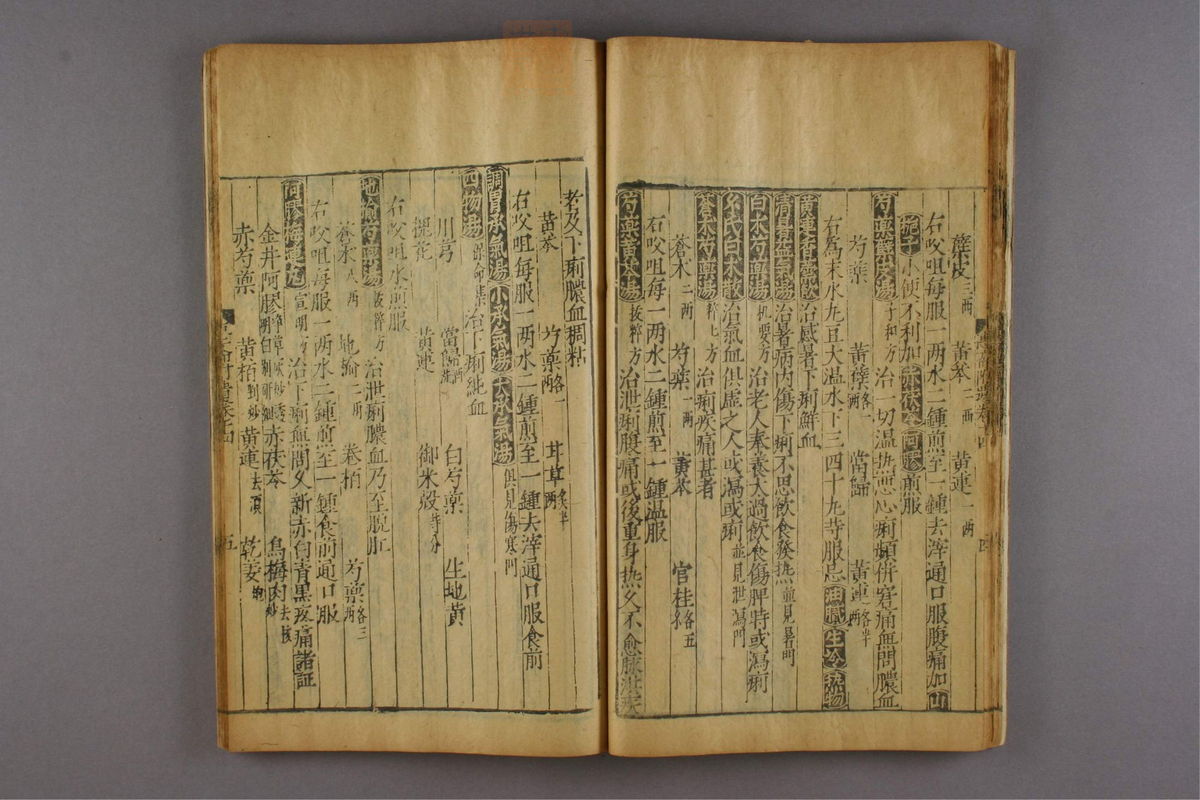 蘗皮三两 黄芩一两 黄連一两
右㕮咀每服一两水二鍾煎至一鍾去滓通口服腹痛加山
梔子小便不利加赤茯苓阿膠煎服
芍藥蘗皮湯子和方治一切温热惡心痢頻併窘痛無問膿血
芍藥 黄蘗各一两 當歸 黄連各半两
右為末水丸豆大温水下三四十丸寺服忌油膩生冷热物
黄連香薷散治感暑下痢鮮血
清暑益氣湯治暑病内傷下痢不思飲食發热並見暑門
白术芍藥湯机要方治老人奉養太過飲食傷脾時或瀉痢
錢氏白术散治氣血俱虚之人或瀉或痢並見泄瀉門
蒼术芍藥湯粹七方治痢疾痛甚者
蒼术二两 芍藥一两 黄芩 官桂各五
右㕮咀每一两水二鍾煎至一鍾温服
芍藥黄芩湯拔粹方治泄痢腹痛或後重身热久不愈脉洪疾
四
者及下痢膿血稠粘
黄芩 芍藥各一两 甘草各半两
右㕮咀每服一两水二鍾煎至一鍾去滓通口服食前
調胃承氣湯小承氣湯大承氣湯俱見傷寒門
四物湯保命集治下痢純血
川芎 當歸酒洗 白芍藥 生地黄
槐花 黄連 御米殻等分
右㕮咀水煎服
地榆芍藥湯拔粹方治泄痢膿血乃至脱肛
蒼术八两 地榆二两 卷栢 芍藥各三两
右㕮咀每服一两水二鍾煎至一鍾食前通口服
阿膠梅連丸宣明方治下痢無問久新赤白青黒疼痛諸証
金井阿膠 赤茯苓 烏梅肉去核
赤芍藥 黄栢剉炒 黄連去須 乾姜炮
五